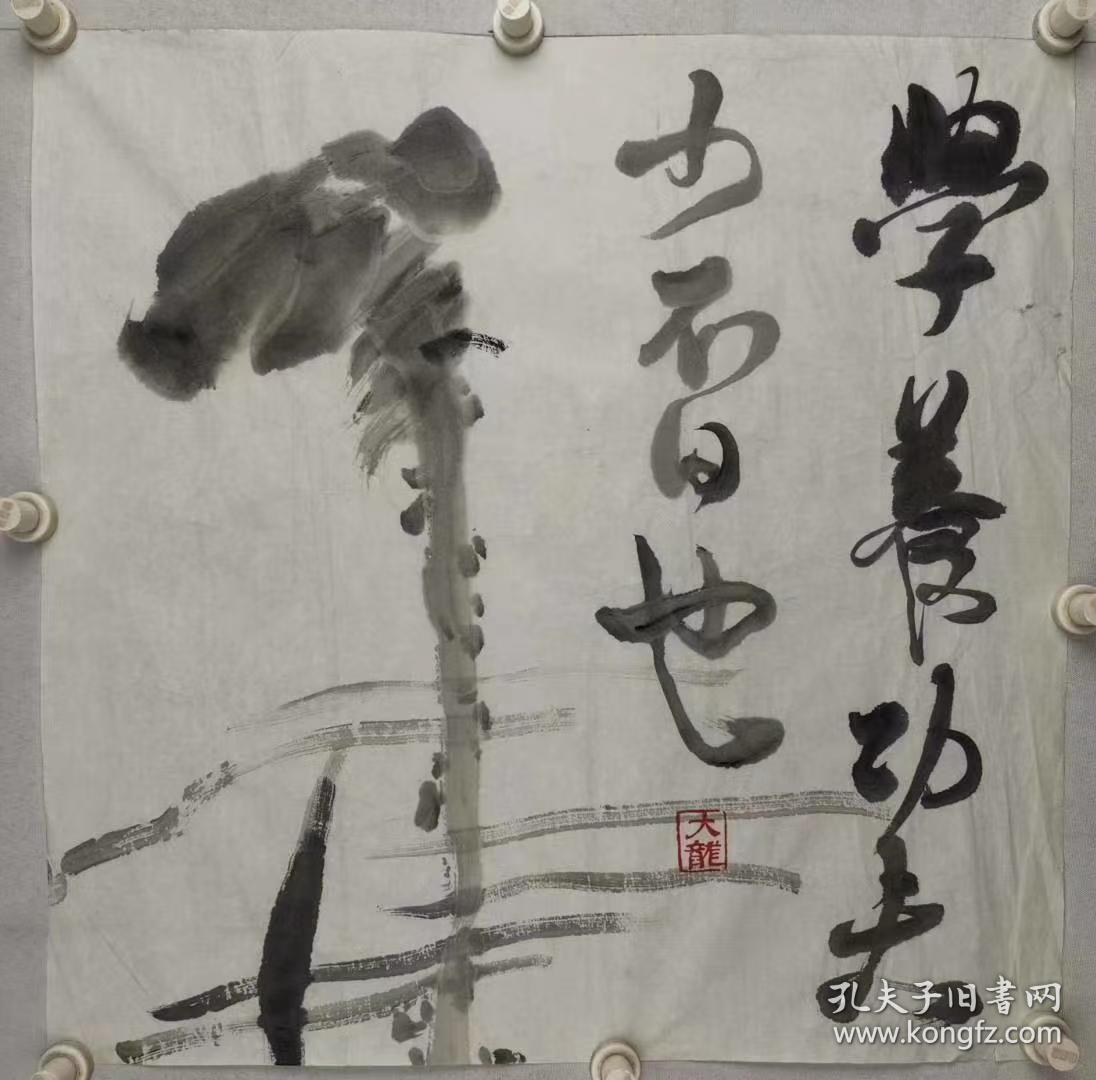 學養功夫
少不得也
大龍
孔夫子旧書网
www.kongfz.com